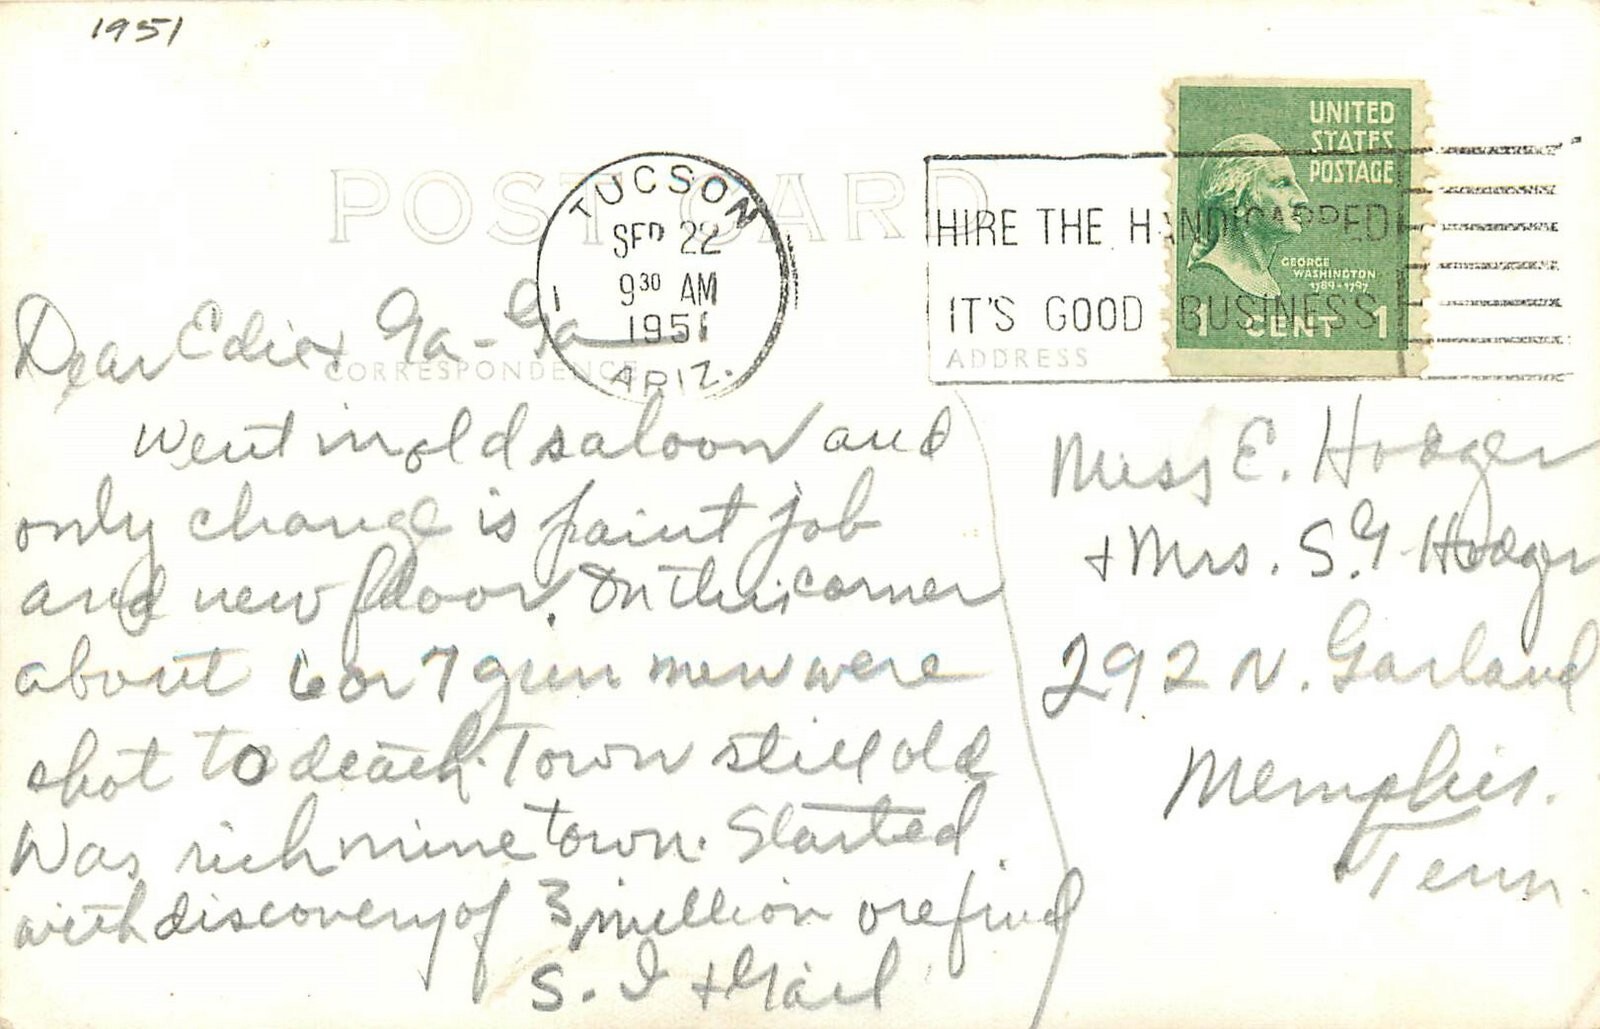 1951
POST CARD
TUCSON
SEP 22
9 30 AM
1951
ARIZ.
HIRE THE HANDICAPPED
IT'S GOOD BUSINESS
UNITED
STATES
POSTAGE
GEORGE
WASHINGTON
1789-1797
1 CENT 1
CORRESPONDENCE
ADDRESS
Dear Edie + Ga-Ga
Went in old saloon and
only change is paint job
and new floor. On this corner
about 6 or 7 gun men were
shot to death. Town still old
Was rich mine town. Started
with discovery of 3 million ore find
S. I + Gail
Miss E. Hodger
+ Mrs. S. G Hodger
292 N. Garland
Memphis.
Tenn.